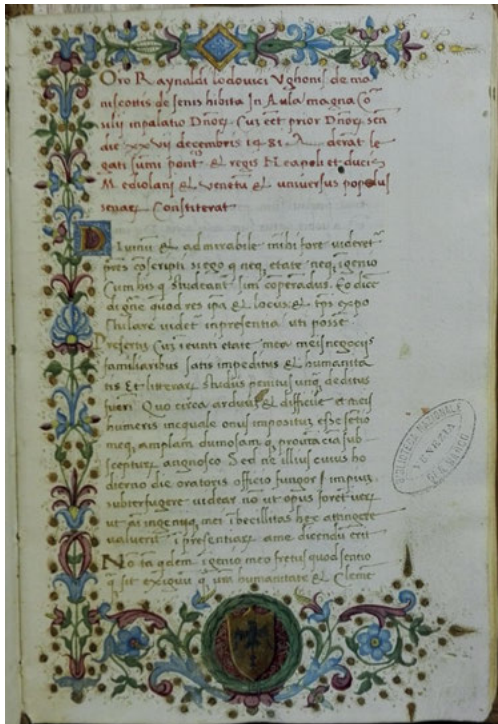 2
Oro Raynaldi lodovici Vghonis de ma
nisconis de senis hibita In Aula magna Cō
silii in palatio Dnorꝝ Cuȝ eēt prior Dnorꝝ sen
die xxvij decembris 1481 Aderat le
gati sumi pont⁊ regis Neapoli et ducis
Mediolani & Venetū & universus populus
senaꝝ Constiterat
Divinū & admirabile mihi fore videretꝰ
pres cōscripti si ego q neq etate neq igenio
Cum his q studeant simˡ coperadus. Eo dice
digne quod res ipa & locus & tps expo
stulare videtˀ in presentia uti possē
Presertiȝ Cuȝ ieunti etate mea meis negocijs
familiaribus satis impeditus & humanita
tis Et litterarꝝ studijs penitus unq deditus
fueri Quo circa arduū & difficile a meis
humeris inequale onus impositus esse sētio
meq amplam dumosam q provītia sub
sceptuȝ angnosco Sed ne illius cuius ho
dierno die oratoris officio fungor impiuȝ
subterfugere videar nō ut opus foret veꝝ
ut ai ingenijq mei ibecillitas hec attingere
valuerit i presentiaꝝ a me dicendū erit
No tā qdem igenio meo fretus quod sentio
q sit exiguū q um humanitate & Clemē
BIBLIOTECA NAZIONALE
FIRENZE